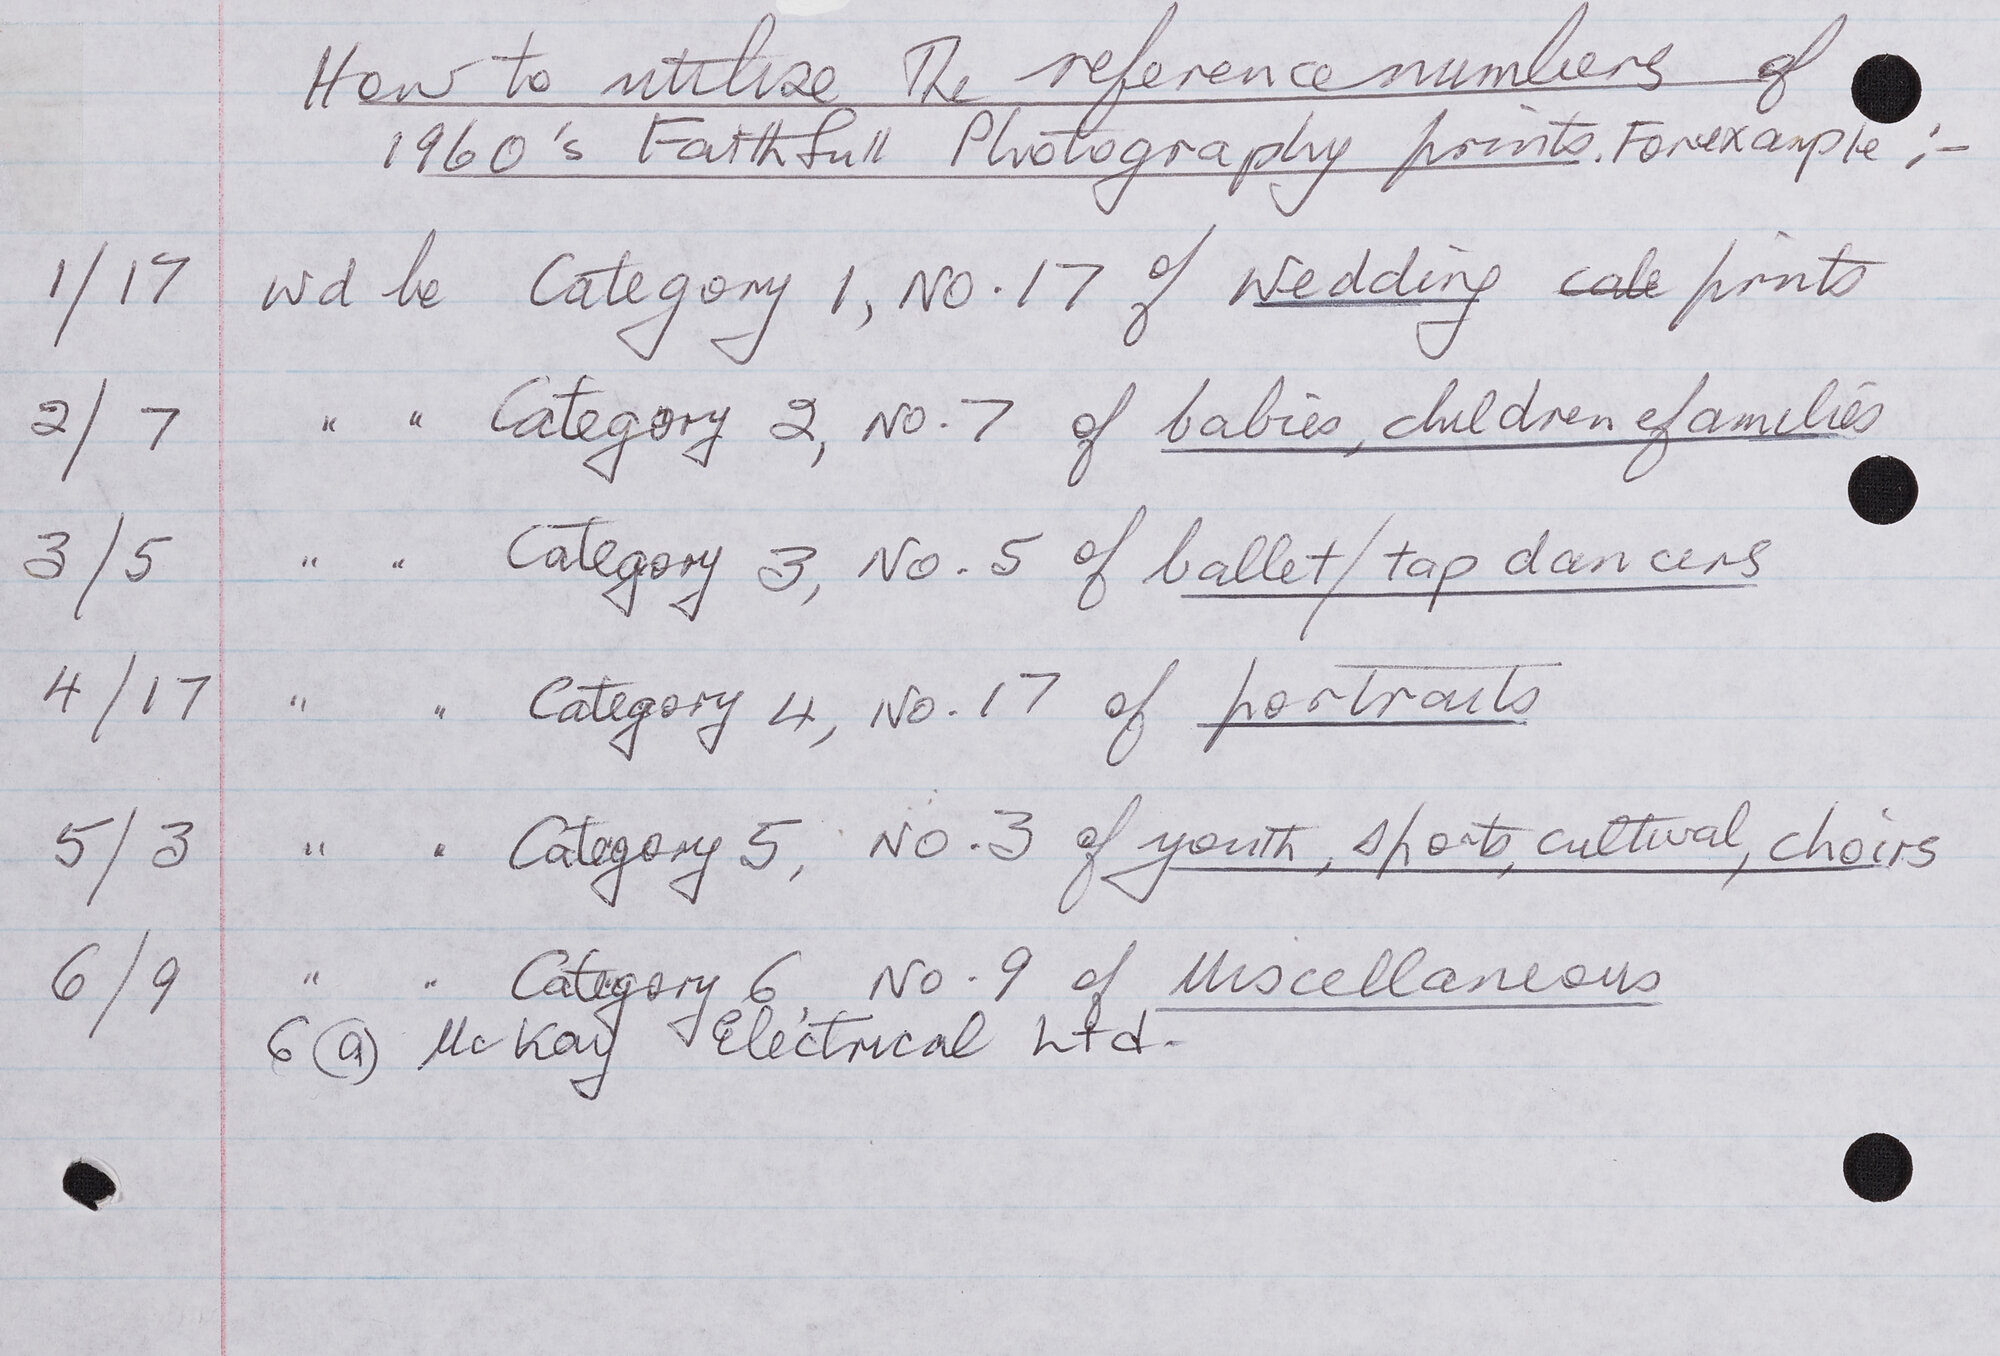 How to utilise The reference numbers of
1960's Faithfull Photography prints. For example :-
1/17 wd be Category 1, No. 17 of Wedding cale prints
2/7 " " Category 2, No. 7 of babies, children & families
3/5 " " Category 3, No. 5 of ballet/tap dancers
4/17 " " Category 4, No. 17 of portraits
5/3 " " Category 5, No. 3 of youth, sports, cultural, choirs
6/9 " " Category 6, No. 9 of Miscellaneous
6 (a) McKay Electrical Ltd.